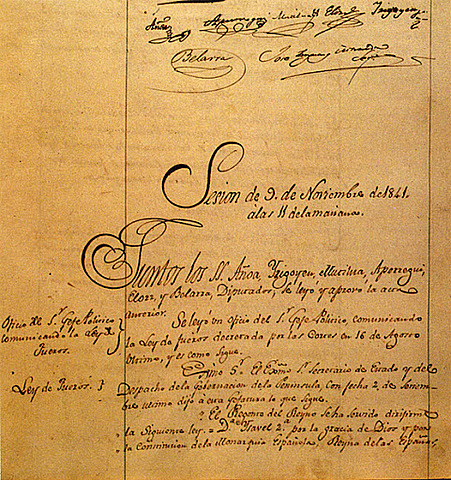 Añoa Aperregui Muzitua Elorz Yrigoyen
Belarra José Yanguas
Sesion de 9. de Noviembre de 1841.
á las 11 de la mañana.
Juntos los SS. Añoa, Yrigoyen, Aperregui,
Elorz, y Belarra, Diputados; se leyó y aprovó la acta
anterior.
Oficio del Sr. Gefe Politico
comunicando la Ley de
Fueros.
Se leyó un oficio del Sr. Gefe Politico, comunicando
la Ley de fueros decretada por las Cortes en 16 de Agosto
ultimo, y es como sigue.
Ley de Fueros.
El Exmo Sr. Secretario de Estado y del
Despacho de la Gobernacion de la Peninsula con fecha 2 de Setiem-
bre ultimo dijo á esta Gefatura lo que sigue.
El Regente del Reyno se ha servido dirigirme
la Siguiente ley. = Da. Isavel 2.a por la gracia de Dios y por
la Constitucion de la Monarquia Española, Reyna de las Españas